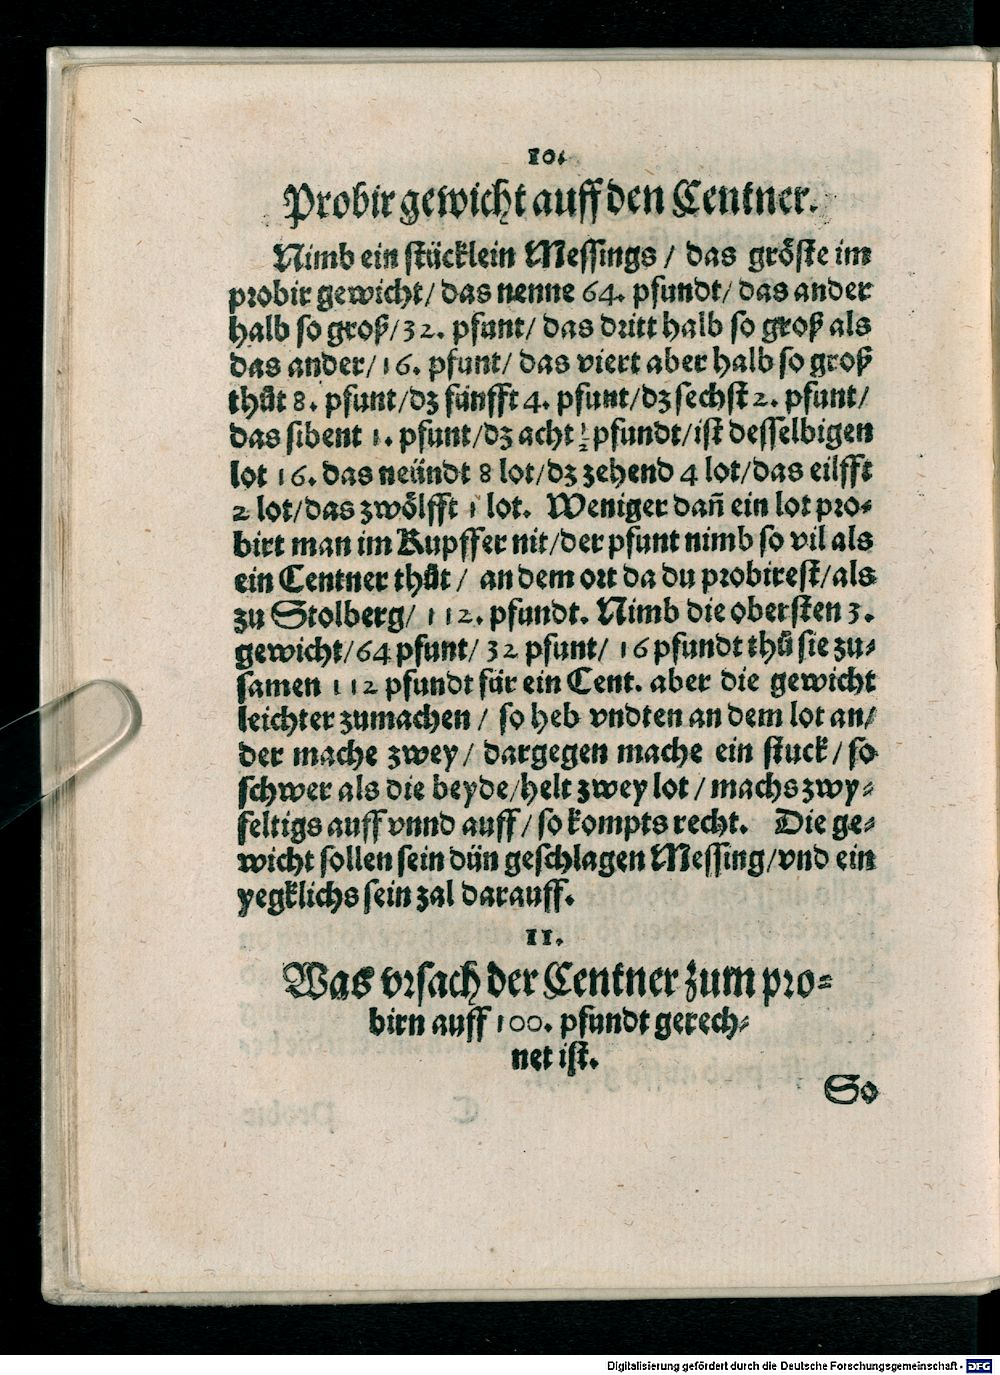 10.
Probir gewicht auff den Centner.
Nimb ein stücklein Messings / das gröste im
probir gewicht / das nenne 64. pfundt / das ander
halb so groß / 32. pfunt / das dritt halb so groß als
das ander / 16. pfunt / das viert aber halb so groß
thůt 8. pfunt / dz fünfft 4. pfunt / dz sechst 2. pfunt /
das sibent 1. pfunt / dz acht ½ pfundt / ist desselbigen
lot 16. das neündt 8 lot / dz zehend 4 lot / das eilfft
2 lot / das zwölfft 1 lot. Weniger dañ ein lot pro-
birt man im Kupffer nit / der pfunt nimb so vil als
ein Centner thůt / an dem ort da du probirest / als
zu Stolberg / 112. pfundt. Nimb die obersten 3.
gewicht / 64 pfunt / 32 pfunt / 16 pfundt thů sie zu-
samen 112 pfundt für ein Cent. aber die gewicht
leichter zumachen / so heb vndten an dem lot an /
der mache zwey / dargegen mache ein stuck / so
schwer als die beyde / helt zwey lot / machs zwy-
feltigs auff vnnd auff / so kompts recht. Die ge-
wicht sollen sein dün geschlagen Messing / vnd ein
yegklichs sein zal darauff.
11.
Was vrsach der Centner zum pro-
birn auff 100. pfundt gerech-
net ist.
So
Digitalisierung gefördert durch die Deutsche Forschungsgemeinschaft - DFG